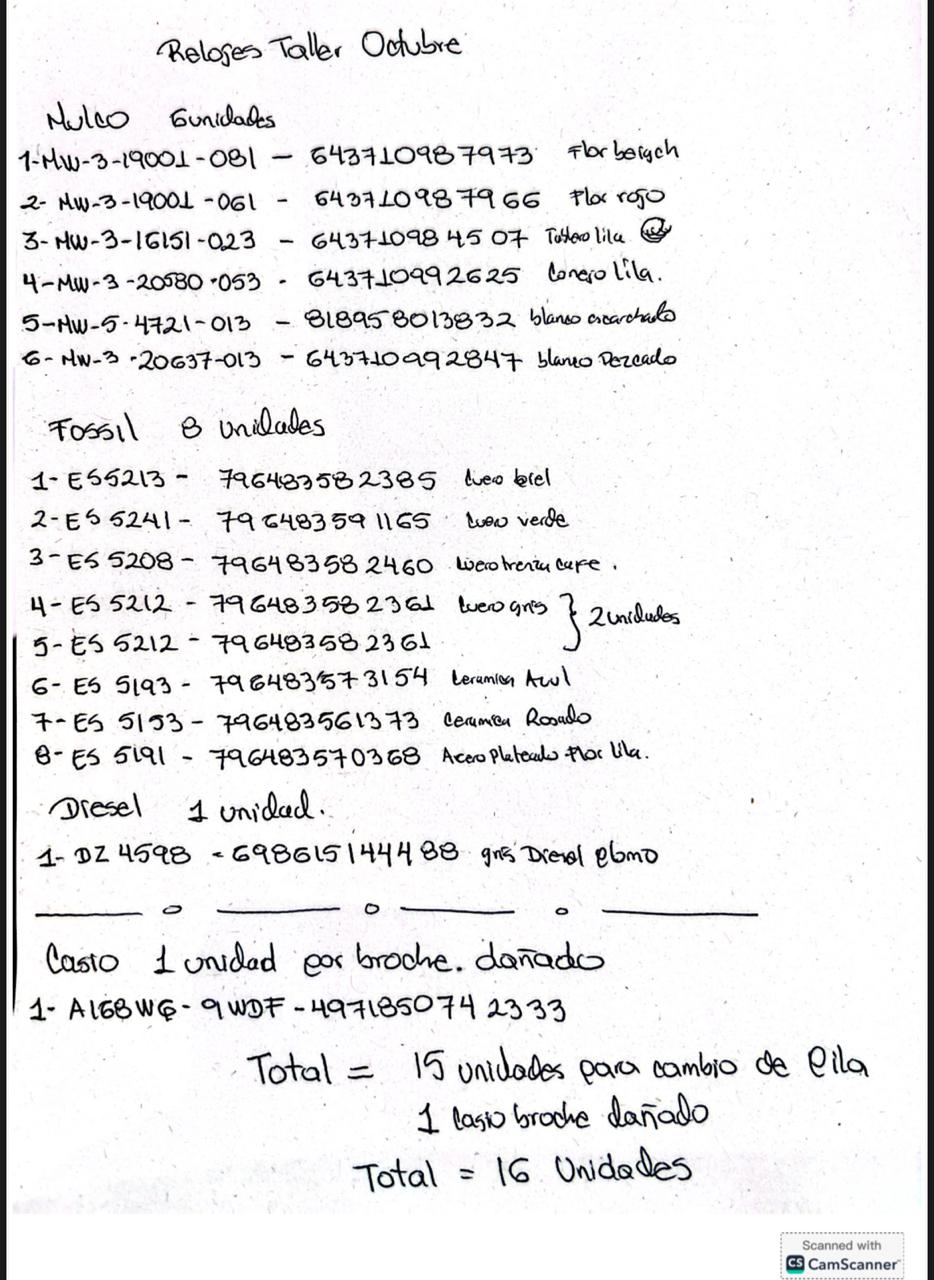 Relojes Taller Octubre
Mulco 6unidades
1-MW-3-19001-081 - 643710987973 Flor beigch
2- MW-3-19001-061 - 643710987966 Flor rojo
3- MW-3-16151-023 - 643710984507 lila
4-MW-3-20580-053 - 643710992625 Conejo Lila.
5-MW-5-4721-013 - 818958013832 blanco escarchado
6- MW-3-20637-013 - 643710992847 blanco Pezcado
Fossil 8 unidades
1- ES5213 - 796483582385 cuero biel
2-ES 5241 - 796483591165 cuero verde
3-ES 5208 - 796483582460 cuero trenza cafe.
4- ES 5212 - 796483582361 cuero gris } 2 unidades
5- ES 5212 - 796483582361
6- ES 5193 - 796483573154 Ceramica Azul
7-ES 5153 - 796483561373 Ceramica Rosado
8- ES 5191 - 796483570368 Acero Plateado Flor lila.
Diesel 1 unidad.
1- DZ 4598 - 698615144488 gris Diesel plomo
Casio 1 unidad por broche. dañado
1- A168WG-9WDF-4971850742333
Total = 15 unidades para cambio de Pila
1 Casio broche dañado
Total = 16 Unidades
Scanned with
CS CamScanner